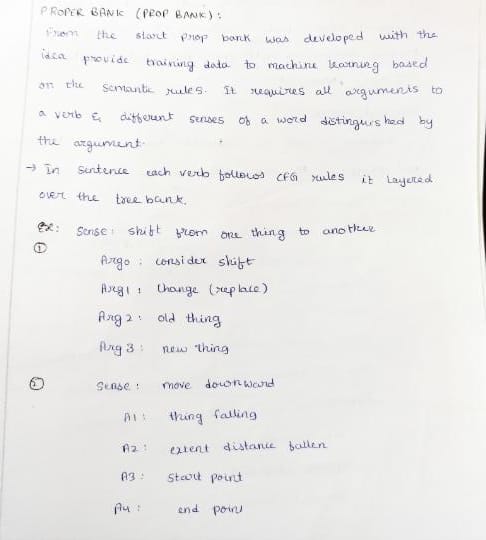 PROPER BANK (PROP BANK):
From the start Prop bank was developed with the
idea provide training data to machine learning based
on the semantic rules. It requires all arguments to
a verb & different senses of a word distinguished by
the argument.
→ In sentence each verb follows CFG rules it Layered
over the tree bank.
ex: Sense: shift from one thing to another
① Arg0: consider shift
Arg1: change (replace)
Arg2: old thing
Arg3: new thing
② Sense: move downward
A1: thing falling
A2: extent distance fallen
A3: Start point
A4: end point